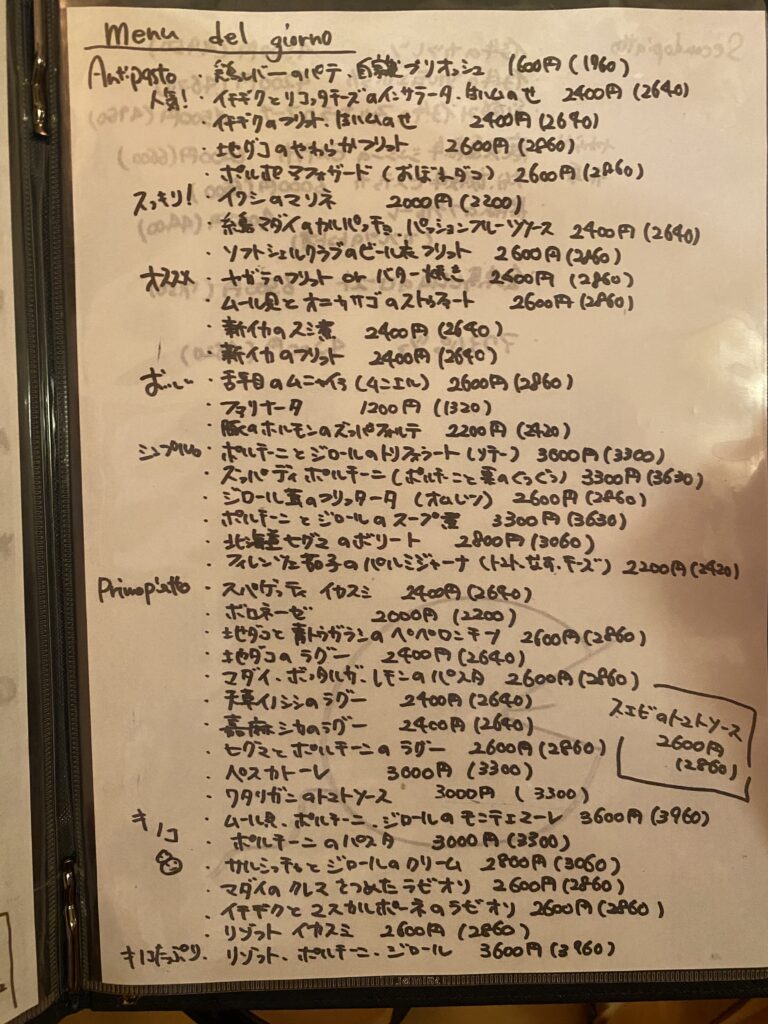 Menu del giorno
Antipasto ・鶏レバーのパテ、自家製ブリオッシュ 1600円(1760)
人気!・イチヂクとリコッタチーズのインサラータ、生ハムのせ 2400円(2640)
・イチヂクのフリット、生ハムのせ 2400円(2640)
・地ダコのやわらかフリット 2600円(2860)
・ポルポ アフォガード(おぼれダコ) 2600円(2860)
スッキリ!・イワシのマリネ 2000円(2200)
・糸島マダイのカルパッチョ、パッションフルーツソース 2400円(2640)
・ソフトシェルクラブのビール衣フリット 2600円(2860)
オススメ ・ヤガラのフリット or バター焼き 2600円(2860)
・ムール貝とオニカサゴのストゥファート 2600円(2860)
・新イカのスミ煮 2400円(2640)
・新イカのフリット 2400円(2640)
おいしい ・舌平目のムニャイヤ(ムニエル) 2600円(2860)
・ファリナータ 1200円(1320)
・豚のホルモンのズッパフォルテ 2200円(2420)
シンプル ・ポルチーニとジロールのトリフォラート(ソテー) 3000円(3300)
・ズッパ ディ ポルチーニ(ポルチーニと栗のぐつぐつ) 3300円(3630)
・ジロール茸のフリッタータ(オムレツ) 2600円(2860)
・ポルチーニとジロールのスープ煮 3300円(3630)
・北海道ヒグマのボリート 2800円(3060)
・フィレンツェ茄子のパルミジャーナ(トマト、なす、チーズ) 2200円(2420)
Primopiatto ・スパゲッティ イカスミ 2400円(2640)
・ボロネーゼ 2000円(2200)
・地ダコと青トウガラシのペペロンチーノ 2600円(2860)
・地ダコのラグー 2400円(2640)
・マダイ、ボッタルガ、レモンのパスタ 2600円(2860)
・天草イノシシのラグー 2400円(2640)
・嘉麻シカのラグー 2400円(2640)
・ヒグマとポルチーニのラグー 2600円(2860)
・ペスカトーレ 3000円(3300)
・ワタリガニのトマトソース 3000円(3300)
スエビのトマトソース
2600円
(2860)
・ムール貝、ポルチーニ、ジロールのモンテエマーレ 3600円(3960)
キノコ ・ポルチーニのパスタ 3000円(3300)
・サルシッチャとジロールのクリーム 2800円(3060)
・マダイのクレスをつめたラビオリ 2600円(2860)
・イチヂクとマスカルポーネのラビオリ 2600円(2860)
・リゾット イカスミ 2600円(2860)
キノコたっぷり ・リゾット、ポルチーニ、ジロール 3600円(3960)